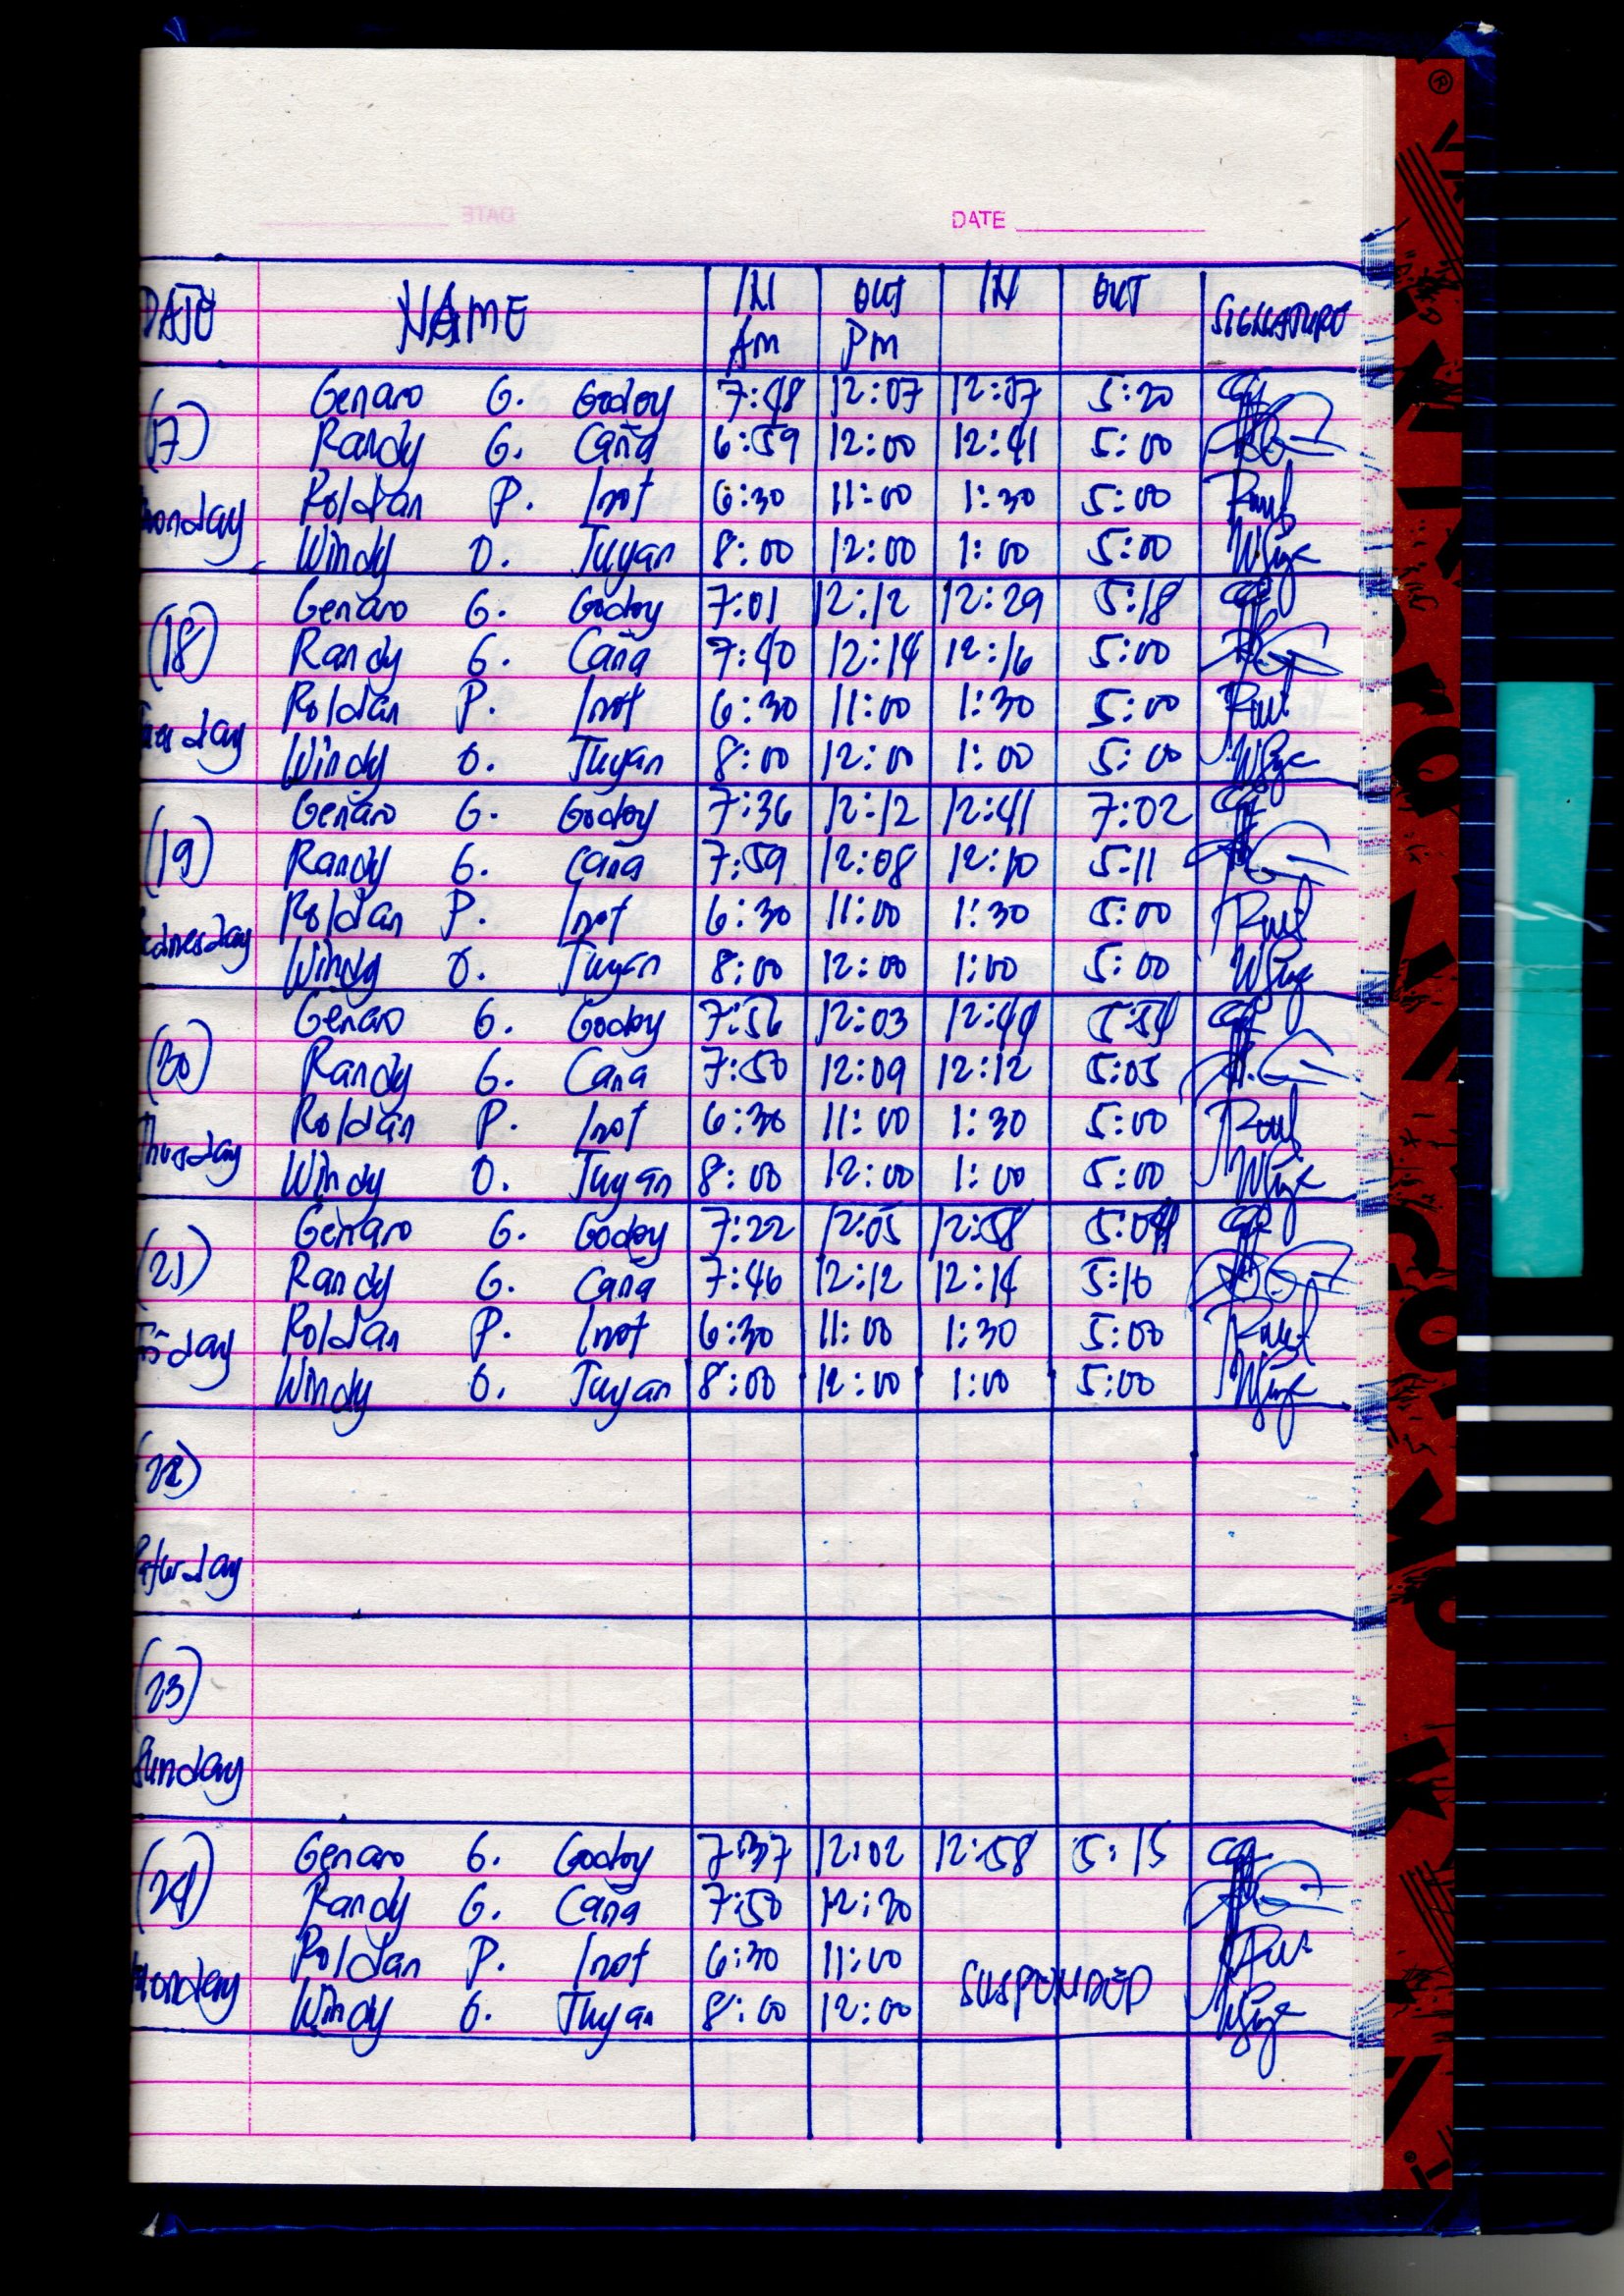 DATE
DATE NAME IN AM OUT PM IN OUT SIGNATURE
(17) Monday
Genaro G. Godoy 7:48 12:07 12:07 5:20
Randy G. Caña 6:59 12:00 12:41 5:00
Roldan P. Inot 6:30 11:00 1:30 5:00
Windy O. Tuyan 8:00 12:00 1:00 5:00
(18)
Genaro G. Godoy 7:01 12:12 12:29 5:18
Randy G. Caña 7:40 12:14 12:16 5:00
Roldan P. Inot 6:30 11:00 1:30 5:00
Windy O. Tuyan 8:00 12:00 1:00 5:00
(19)
Genaro G. Godoy 7:36 12:12 12:41 7:02
Randy G. Caña 7:59 12:08 12:10 5:11
Roldan P. Inot 6:30 11:00 1:30 5:00
Windy O. Tuyan 8:00 12:00 1:00 5:00
(20) Thusday
Genaro G. Godoy 7:56 12:03 12:44 5:54
Randy G. Cana 7:50 12:09 12:12 5:05
Roldan P. Inot 6:30 11:00 1:30 5:00
Windy O. Tuyan 8:00 12:00 1:00 5:00
(21) Friday
Genaro G. Godoy 7:22 12:05 12:58
Randy G. Cana 7:46 12:12 12:14 5:16
Roldan P. Inot 6:30 11:00 1:30 5:00
Windy O. Tuyan 8:00 12:00 1:00 5:00
(22)
(23)
Sunday
(24) Monday
Genaro G. Godoy 7:37 12:02 12:58 5:15
Randy G. Caña 7:50 12:30
Roldan P. Inot 6:30 11:00 SUSPENDED
Windy O. Tuyan 8:00 12:00